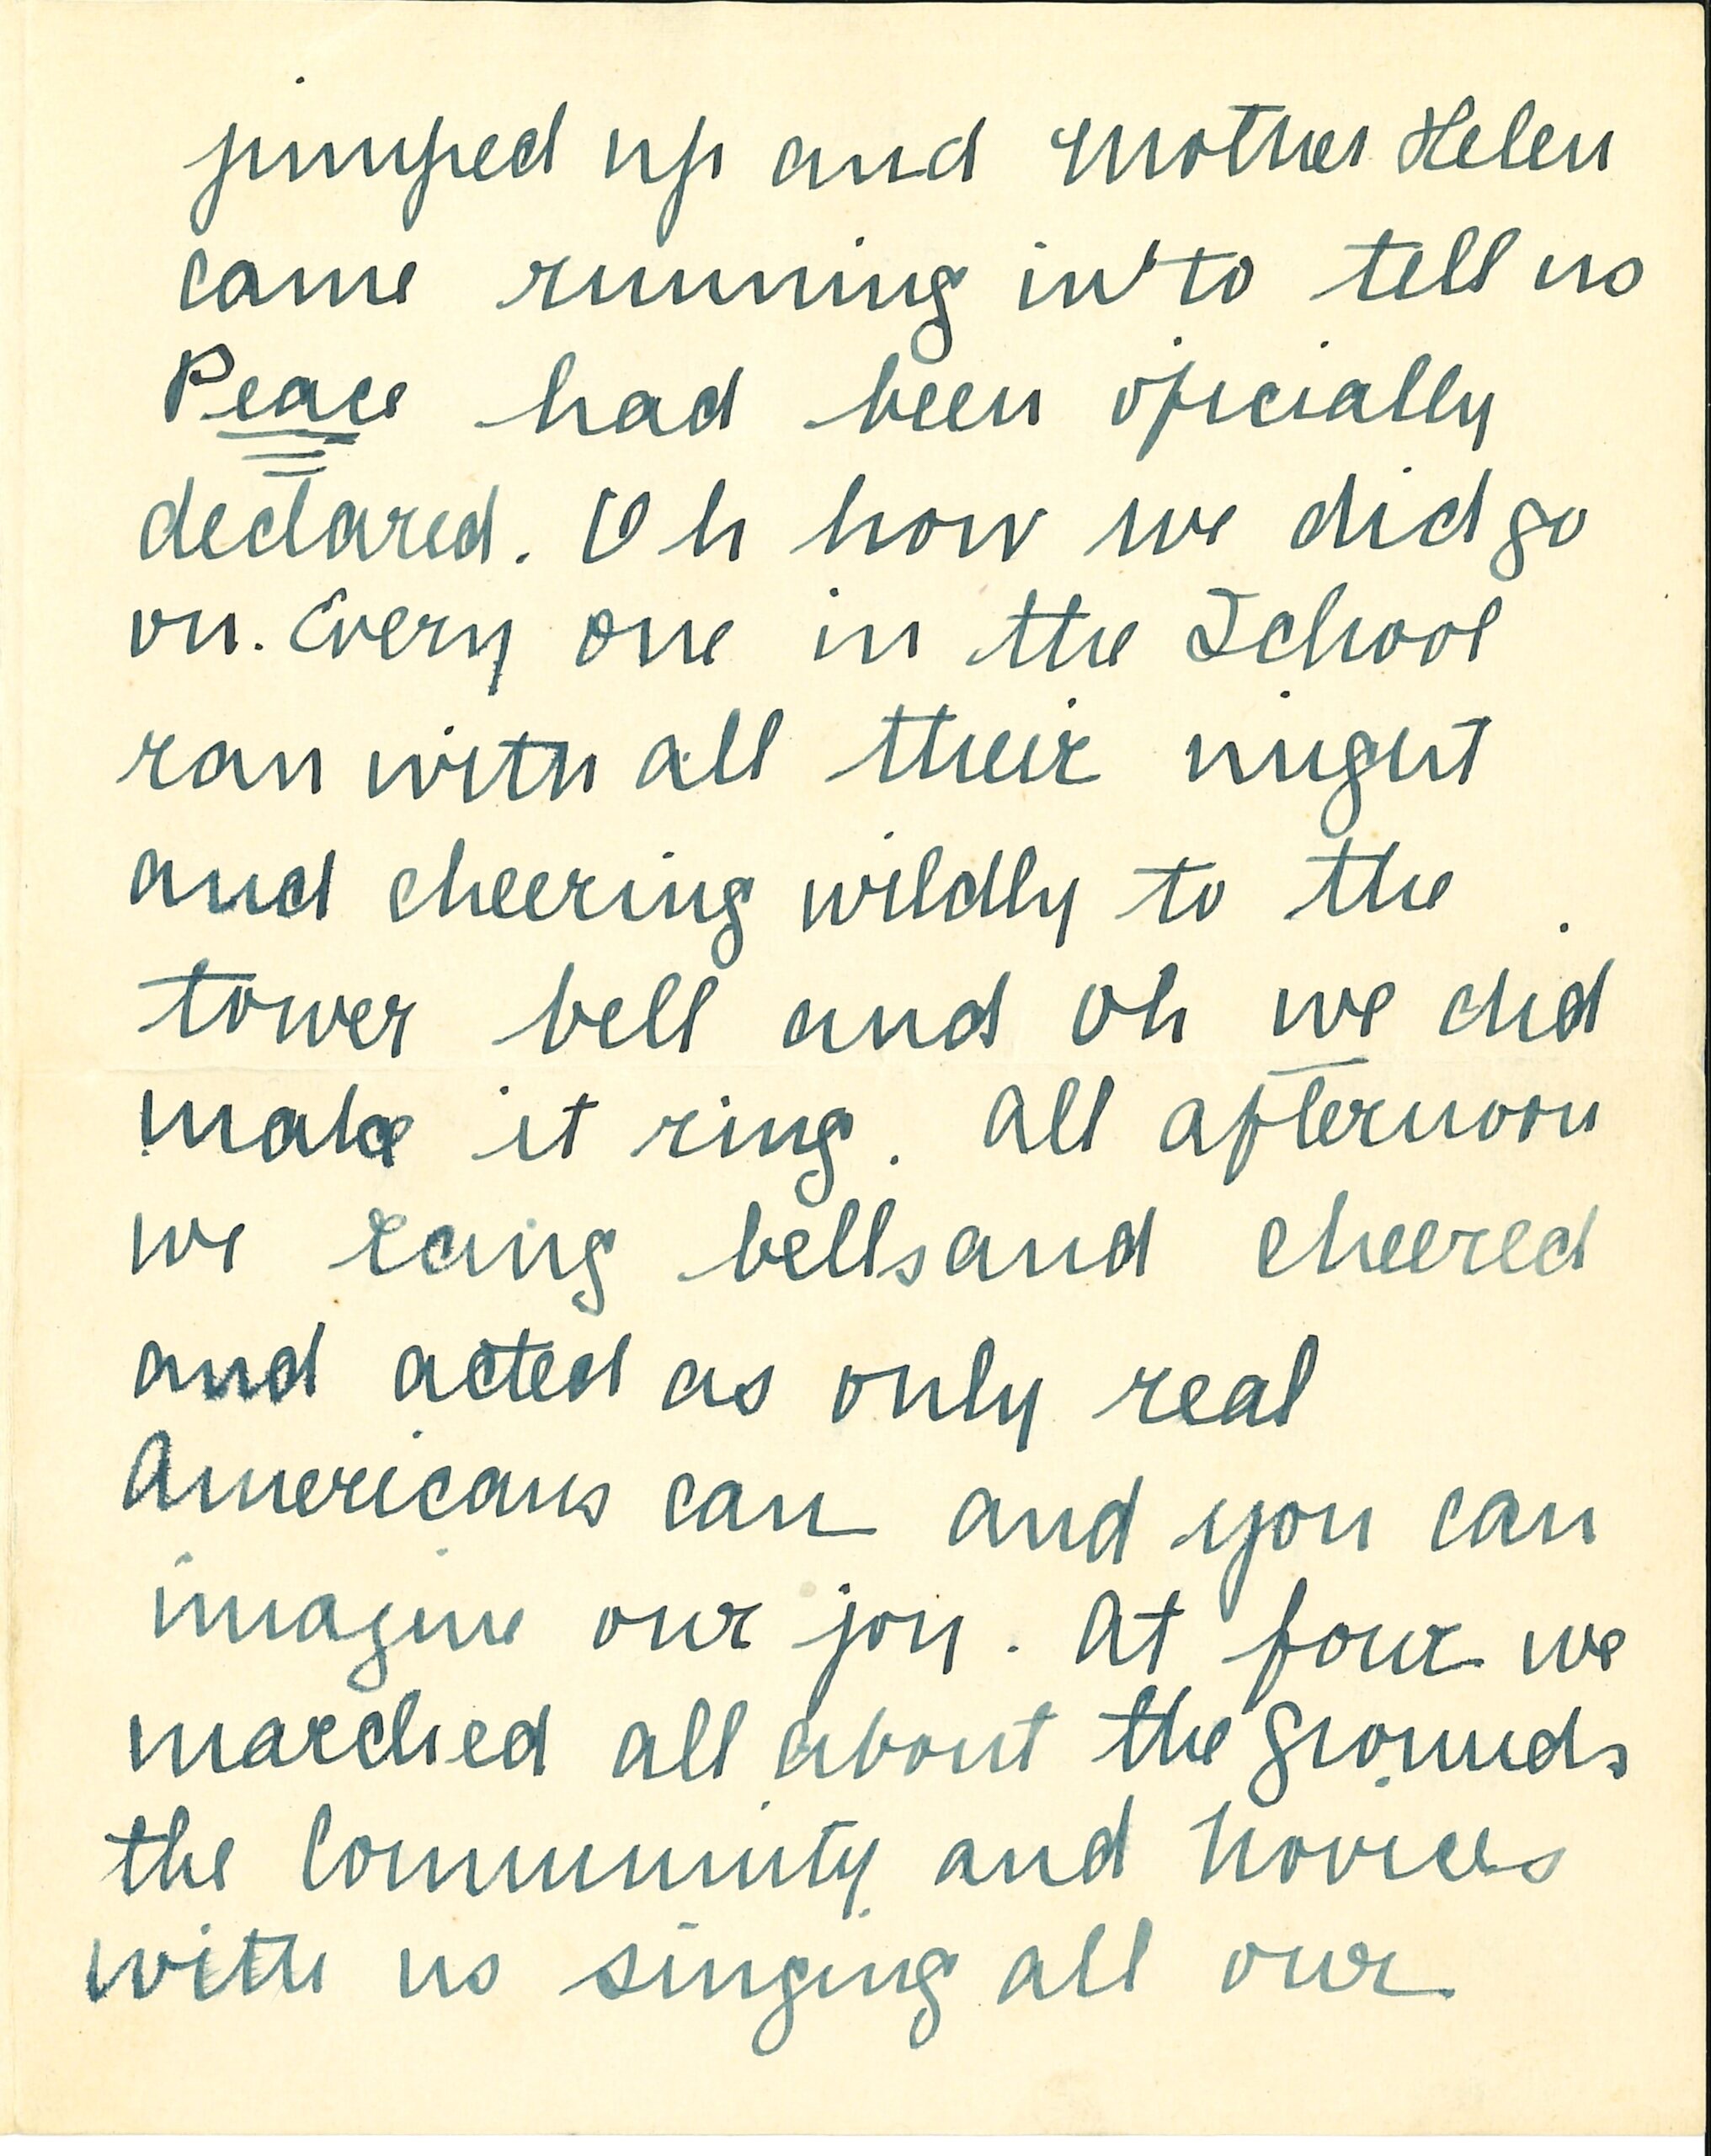 jumped up and Mother Helen
came running in to tell us
Peace had been oficially
declared. Oh how we did go
on. Every one in the School
ran with all their might
and cheering wildly to the
tower bell and oh we did
make it ring. All afternoon
we rang bells and cheered
and acted as only real
Americans can and you can
imagine our joy. At four we
marched all about the grounds
the Community and novices
with us singing all our